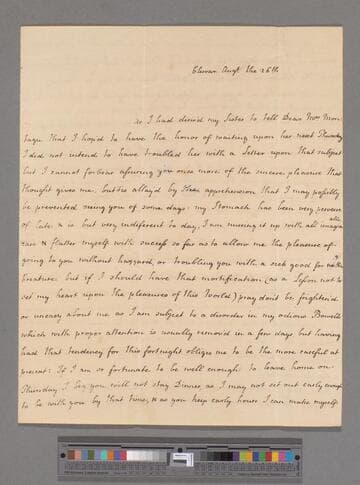 Augst the 26th
as I had desired my Sister to tell Dear Mrs Mon
tagu that I hop'd to have the honor of waiting upon her next Thursday
I did not intend to have troubled her with a Letter upon that subject
but I cannot forbear assuring you once more of the sincere pleasure that
thought gives me, but tis allay'd by the apprehension that I may possibly
be prevented seeing you of some days: my Stomach has been very perverse
of late & is but very indifferent to day, I am nursing it up with all imagin
able
care & flatter myself with success so far as to allow me the pleasure of
going to you without hazard, or troubling you with a sick good for nothing
creature but if I should have that mortification (as a Lesson not to
set my heart upon the pleasures of this World) pray don't be frightened
or uneasy about me as I am subject to a disorder in my odious Bowells
which with proper attention is usually remov'd in a few days but having
had that tendency for this fortnight obliges me to be the more careful at
present: If I am so fortunate to be well enough to leave home on
Thursday I beg you will not stay Dinner, as I may not set out early enough
to be with you by that time, & as you keep early hours I can make myself